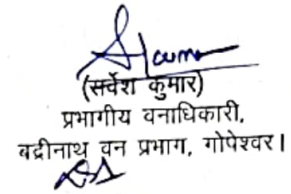 (सर्वेश कुमार)
प्रभागीय वनाधिकारी,
बद्रीनाथ वन प्रभाग, गोपेश्वर।